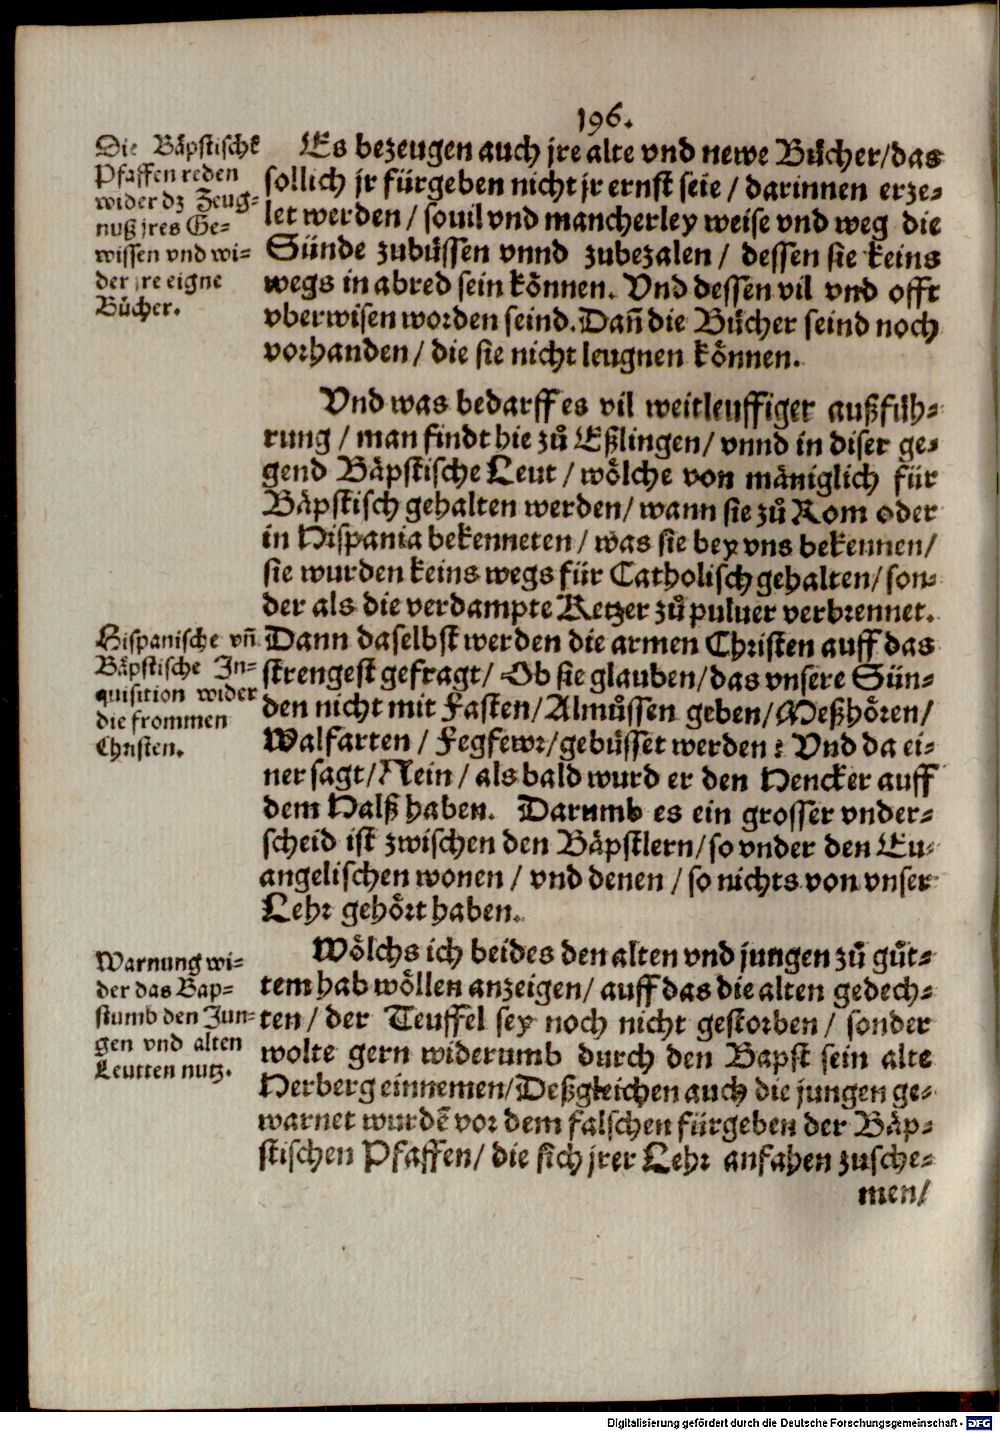 196.
Die Bäpstischẽ
Pfaffen reden
wider dz Zeug-
nuß jres Ge-
wissen vnd wi-
der jre eigne
Bücher.
Es bezeugen auch jre alte vnd newe Bücher/das
sollich jr fürgeben nicht jr ernst seie / darinnen erze-
let werden / souil vnd mancherley weise vnd weg die
Sünde zubüssen vnnd zubezalen / dessen sie keins
wegs in abred sein können. Vnd dessen vil vnd offt
vberwisen worden seind. Dañ die Bücher seind noch
vorhanden / die sie nicht leugnen können.
Vnd was bedarff es vil weitleuffiger außfüh-
rung / man findt hie zů Eßlingen / vnnd in diser ge-
gend Bäpstische Leut / wölche von mäniglich für
Bäpstisch gehalten werden / wann sie zů Rom oder
in Hispania bekenneten / was sie bey vns bekennen /
sie wurden keins wegs für Catholisch gehalten / son-
der als die verdampte Ketzer zů puluer verbrennet.
Hispanische vñ
Bäpstische In-
quisition wider
die frommen
Christen.
Dann daselbst werden die armen Christen auff das
strengest gefragt / Ob sie glauben / das vnsere Sün-
den nicht mit Fasten / Almůssen geben / Meßhören /
Walfarten / Fegfewr / gebüsset werden? Vnd da ei-
ner sagt / Nein / als bald wurd er den Hencker auff
dem Halß haben. Darumb es ein grosser vnder-
scheid ist zwischen den Bäpstlern / so vnder den Eu-
angelischen wonen / vnd denen / so nichts von vnser
Lehr gehört haben.
Warnung wi-
der das Bap-
stumb den Jun-
gen vnd alten
Leutten nutz.
Wölchs ich beides den alten vnd jungen zů gůt-
tem hab wöllen anzeigen / auff das die alten gedech-
ten / der Teuffel sey noch nicht gestorben / sonder
wolte gern widerumb durch den Bapst sein alte
Herberg einnemen / Deßgleichen auch die jungen ge-
warnet wurdẽ vor dem falschen fürgeben der Bäp-
stischen Pfaffen / die sich jrer Lehr anfahen zusche-
men /
Digitalisierung gefördert durch die Deutsche Forschungsgemeinschaft - DFG